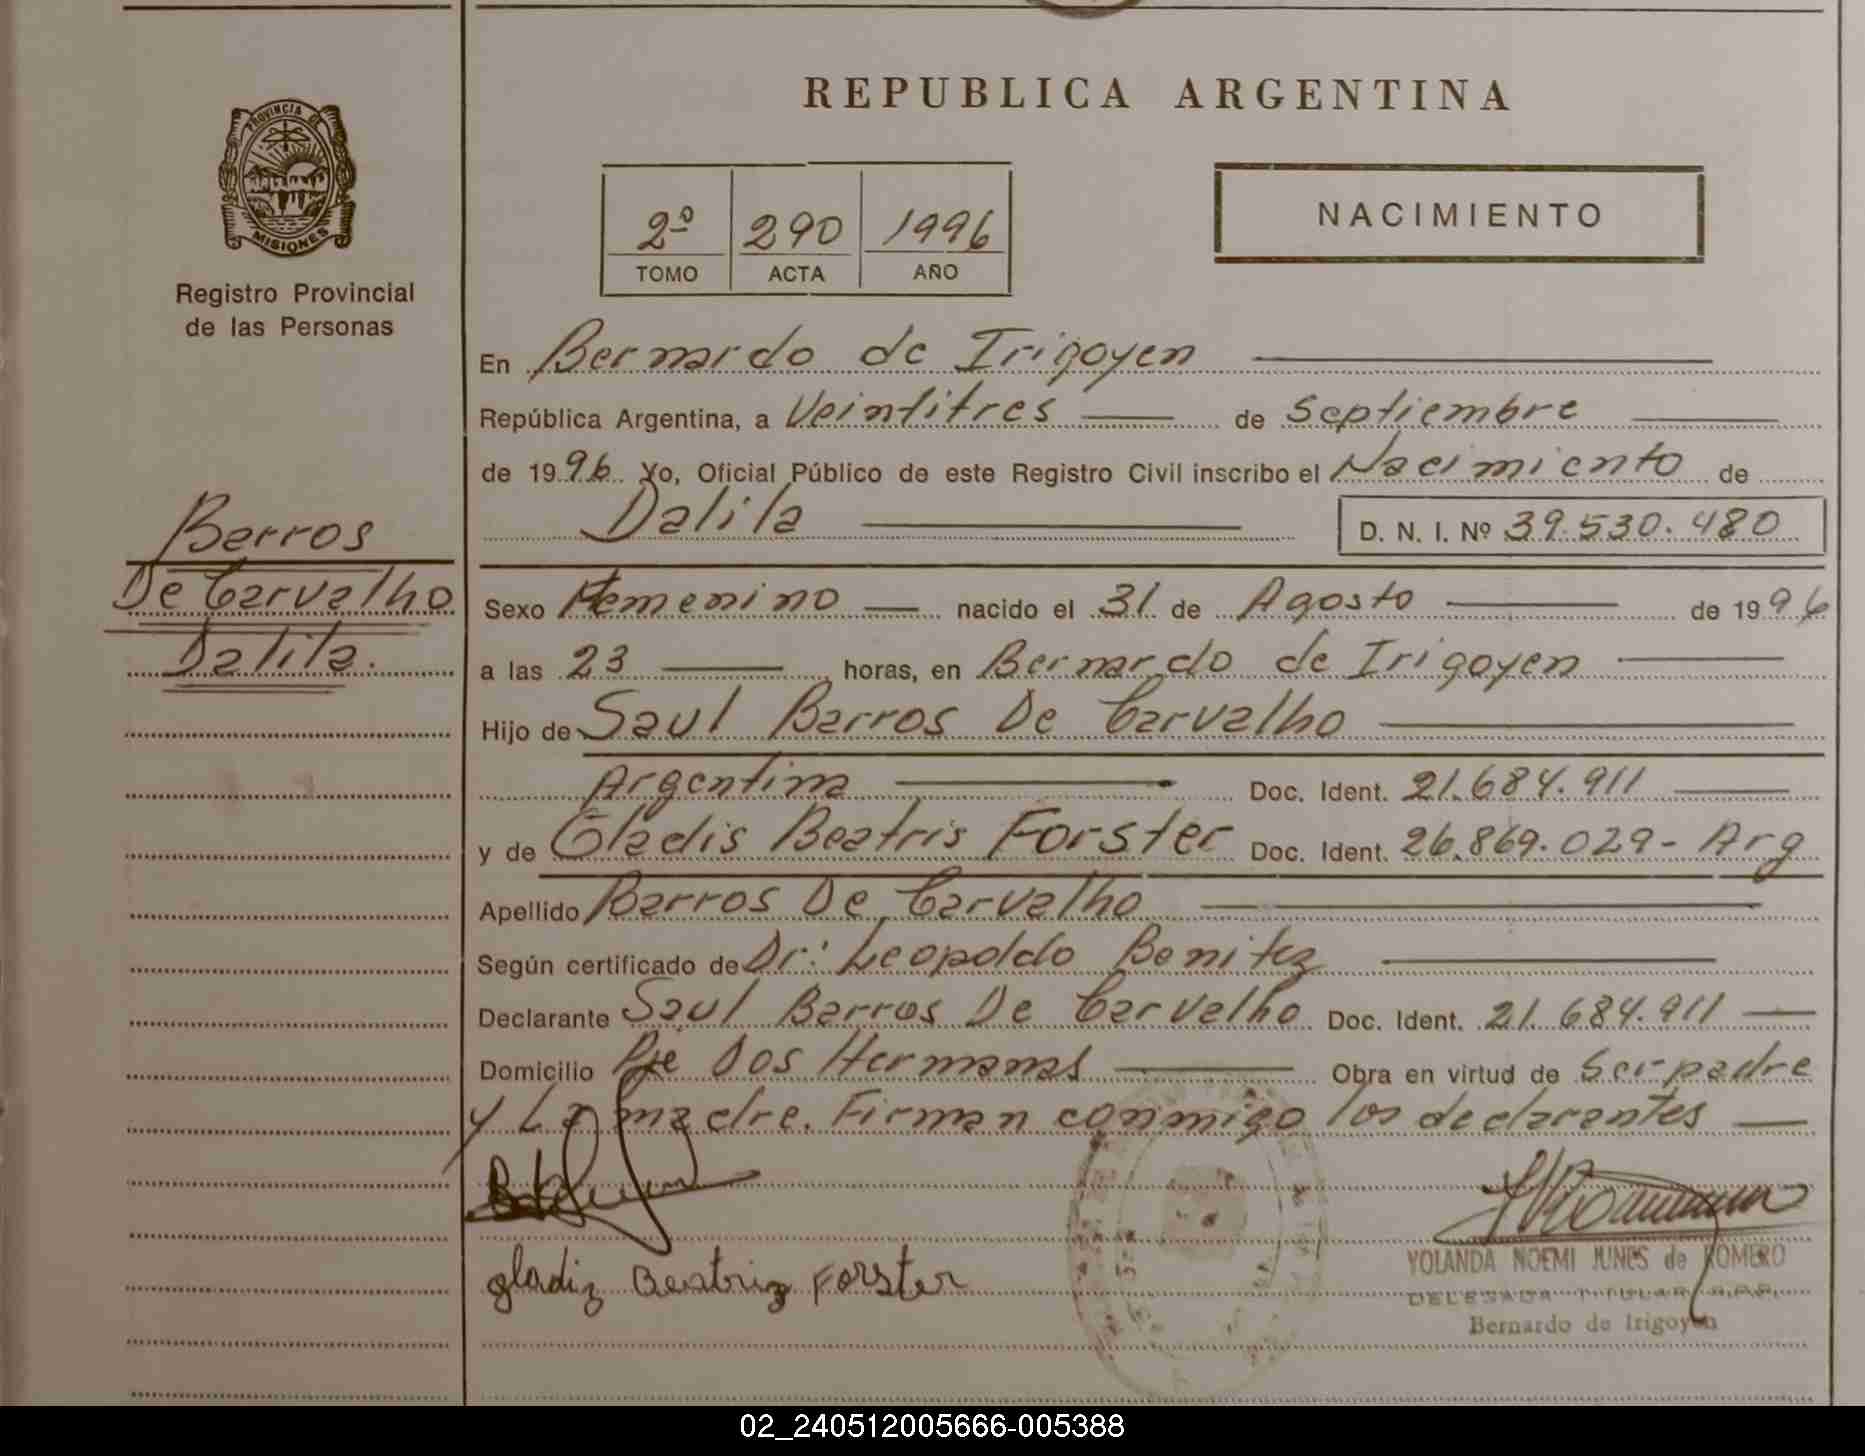 REPUBLICA ARGENTINA
PROVINCIA DE
MISIONES
Registro Provincial
de las Personas
2º 290 1996
TOMO ACTA AÑO
NACIMIENTO
En Bernardo de Irigoyen
República Argentina, a Veintitres de Septiembre
de 1996 Yo, Oficial Público de este Registro Civil inscribo el Nacimiento de
Dalila D. N. I. Nº 39.530.480
Barros
De Carvalho
Dalila.
Sexo Femenino nacido el 31 de Agosto de 1996
a las 23 horas, en Bernardo de Irigoyen
Hijo de Saul Barros De Carvalho
Argentina Doc. Ident. 21.684.911
y de Gladis Beatris Forster Doc. Ident. 26.869.029- Arg
Apellido Barros De Carvalho
Según certificado de Dr: Leopoldo Benitez
Declarante Saul Barros De Carvalho Doc. Ident. 21.684.911
Domicilio Pje Dos Hermanas Obra en virtud de Ser padre
y La madre. Firman conmigo los declarantes
gladiz Beatriz Forster
YOLANDA NOEMI JUNES de ROMERO
DELEGADA TITULAR R.P.P.
Bernardo de Irigoyen
02_240512005666-005388